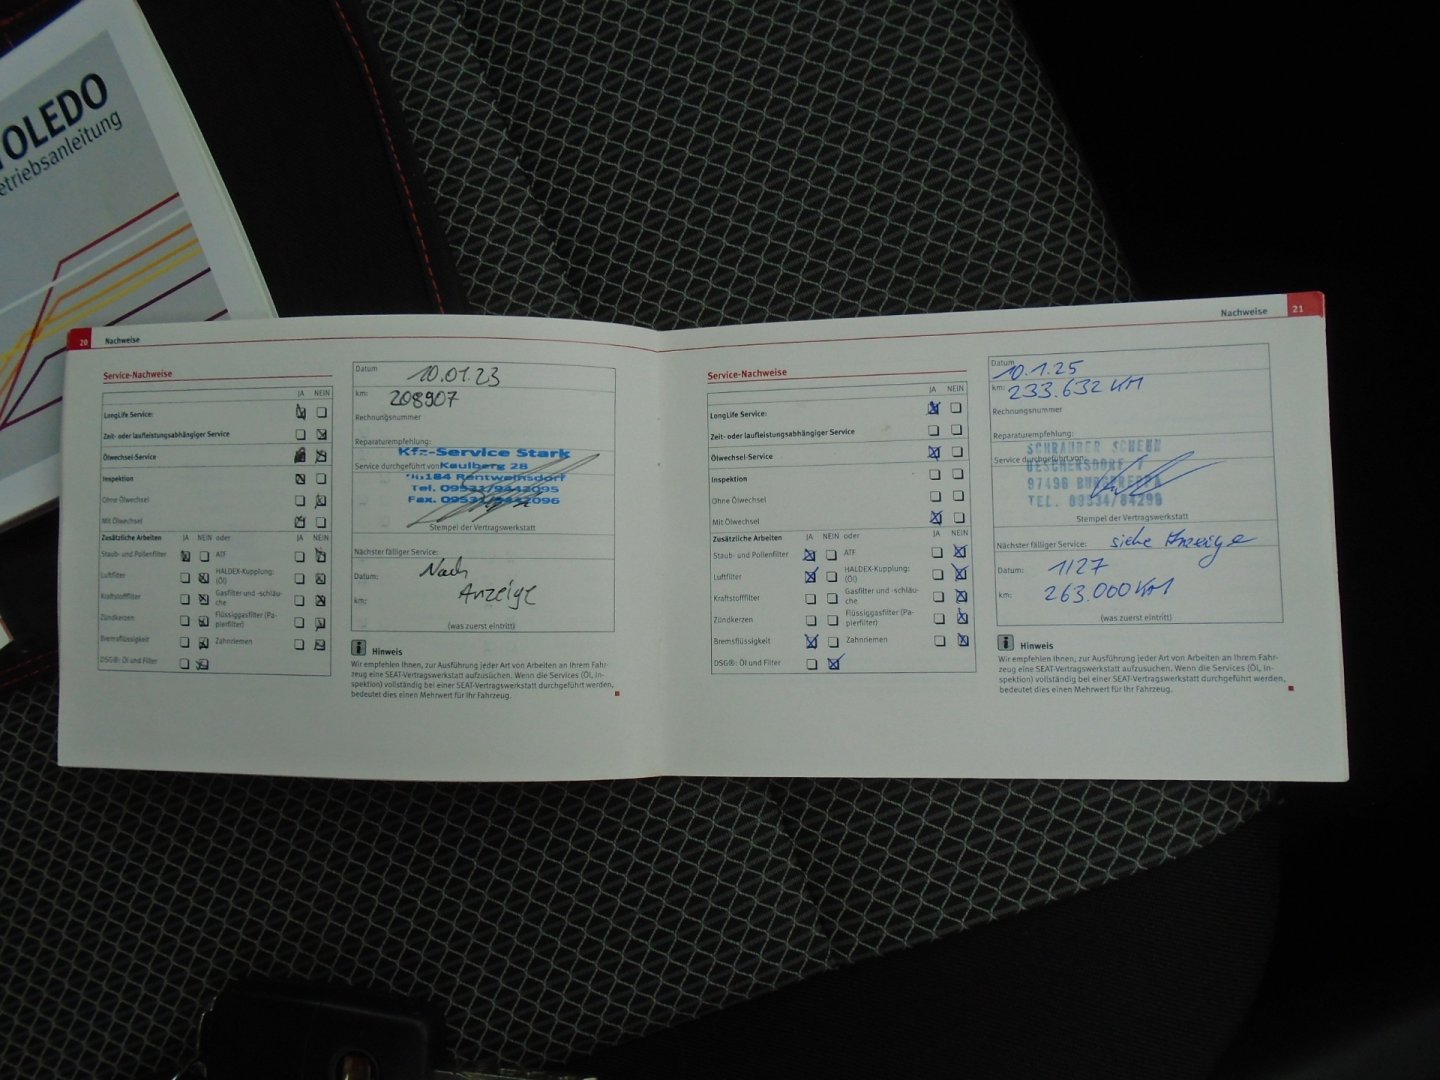 TOLEDO
etriebsanleitung
20 Nachweise
Service-Nachweise
JA NEIN
LongLife Service:
Zeit- oder laufleistungsabhängiger Service
Ölwechsel-Service
Inspektion
Ohne Ölwechsel
Mit Ölwechsel
Zusätzliche Arbeiten JA NEIN oder JA NEIN
Staub- und Pollenfilter ATF
Luftfilter HALDEX-Kupplung:
(Öl)
Kraftstofffilter Gasfilter und -schläu-
che
Zündkerzen Flüssiggasfilter (Pa-
pierfilter)
Bremsflüssigkeit Zahnriemen
DSG®: Öl und Filter
Datum 10.01.23
km: 208907
Rechnungsnummer
Reparaturempfehlung:
Kfz-Service Stark
Service durchgeführt von: Kaulberg 28
96184 Rentweinsdorf
Tel. 09531/9442095
Fax. 09531/9442096
Stempel der Vertragswerkstatt
Nächster fälliger Service:
Datum: Nach
km: Anzeige
(was zuerst eintritt)
Hinweis
Wir empfehlen Ihnen, zur Ausführung jeder Art von Arbeiten an Ihrem Fahr-
zeug eine SEAT-Vertragswerkstatt aufzusuchen. Wenn die Services (Öl, In-
spektion) vollständig bei einer SEAT-Vertragswerkstatt durchgeführt werden,
bedeutet dies einen Mehrwert für Ihr Fahrzeug.
Nachweise 21
Service-Nachweise
JA NEIN
LongLife Service:
Zeit- oder laufleistungsabhängiger Service
Ölwechsel-Service
Inspektion
Ohne Ölwechsel
Mit Ölwechsel
Zusätzliche Arbeiten JA NEIN oder JA NEIN
Staub- und Pollenfilter ATF
Luftfilter HALDEX-Kupplung:
(Öl)
Kraftstofffilter Gasfilter und -schläu-
che
Zündkerzen Flüssiggasfilter (Pa-
pierfilter)
Bremsflüssigkeit Zahnriemen
DSG®: Öl und Filter
Datum 10.1.25
km: 233.632 KM
Rechnungsnummer
Reparaturempfehlung:
SCHRAUBER SCHEUN
Service durchgeführt von:
GESCHERSDORF 7
97496 BURGPREPPA
TEL. 09534/84290
Stempel der Vertragswerkstatt
Nächster fälliger Service: siehe Anzeige
Datum: 1127
km: 263.000 KM
(was zuerst eintritt)
Hinweis
Wir empfehlen Ihnen, zur Ausführung jeder Art von Arbeiten an Ihrem Fahr-
zeug eine SEAT-Vertragswerkstatt aufzusuchen. Wenn die Services (Öl, In-
spektion) vollständig bei einer SEAT-Vertragswerkstatt durchgeführt werden,
bedeutet dies einen Mehrwert für Ihr Fahrzeug.